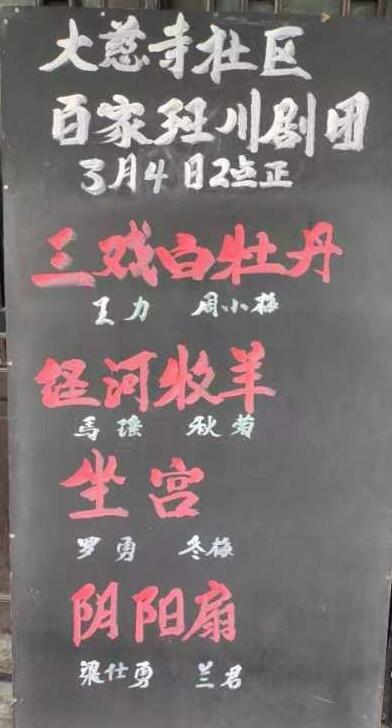 大慈寺社区
百家班川剧团
3月4日2点正
三戏白牡丹
王力 周小梅
经河牧羊
馬瑶 秋菊
坐宫
罗勇 冬梅
阴阳扇
梁仕勇 兰君